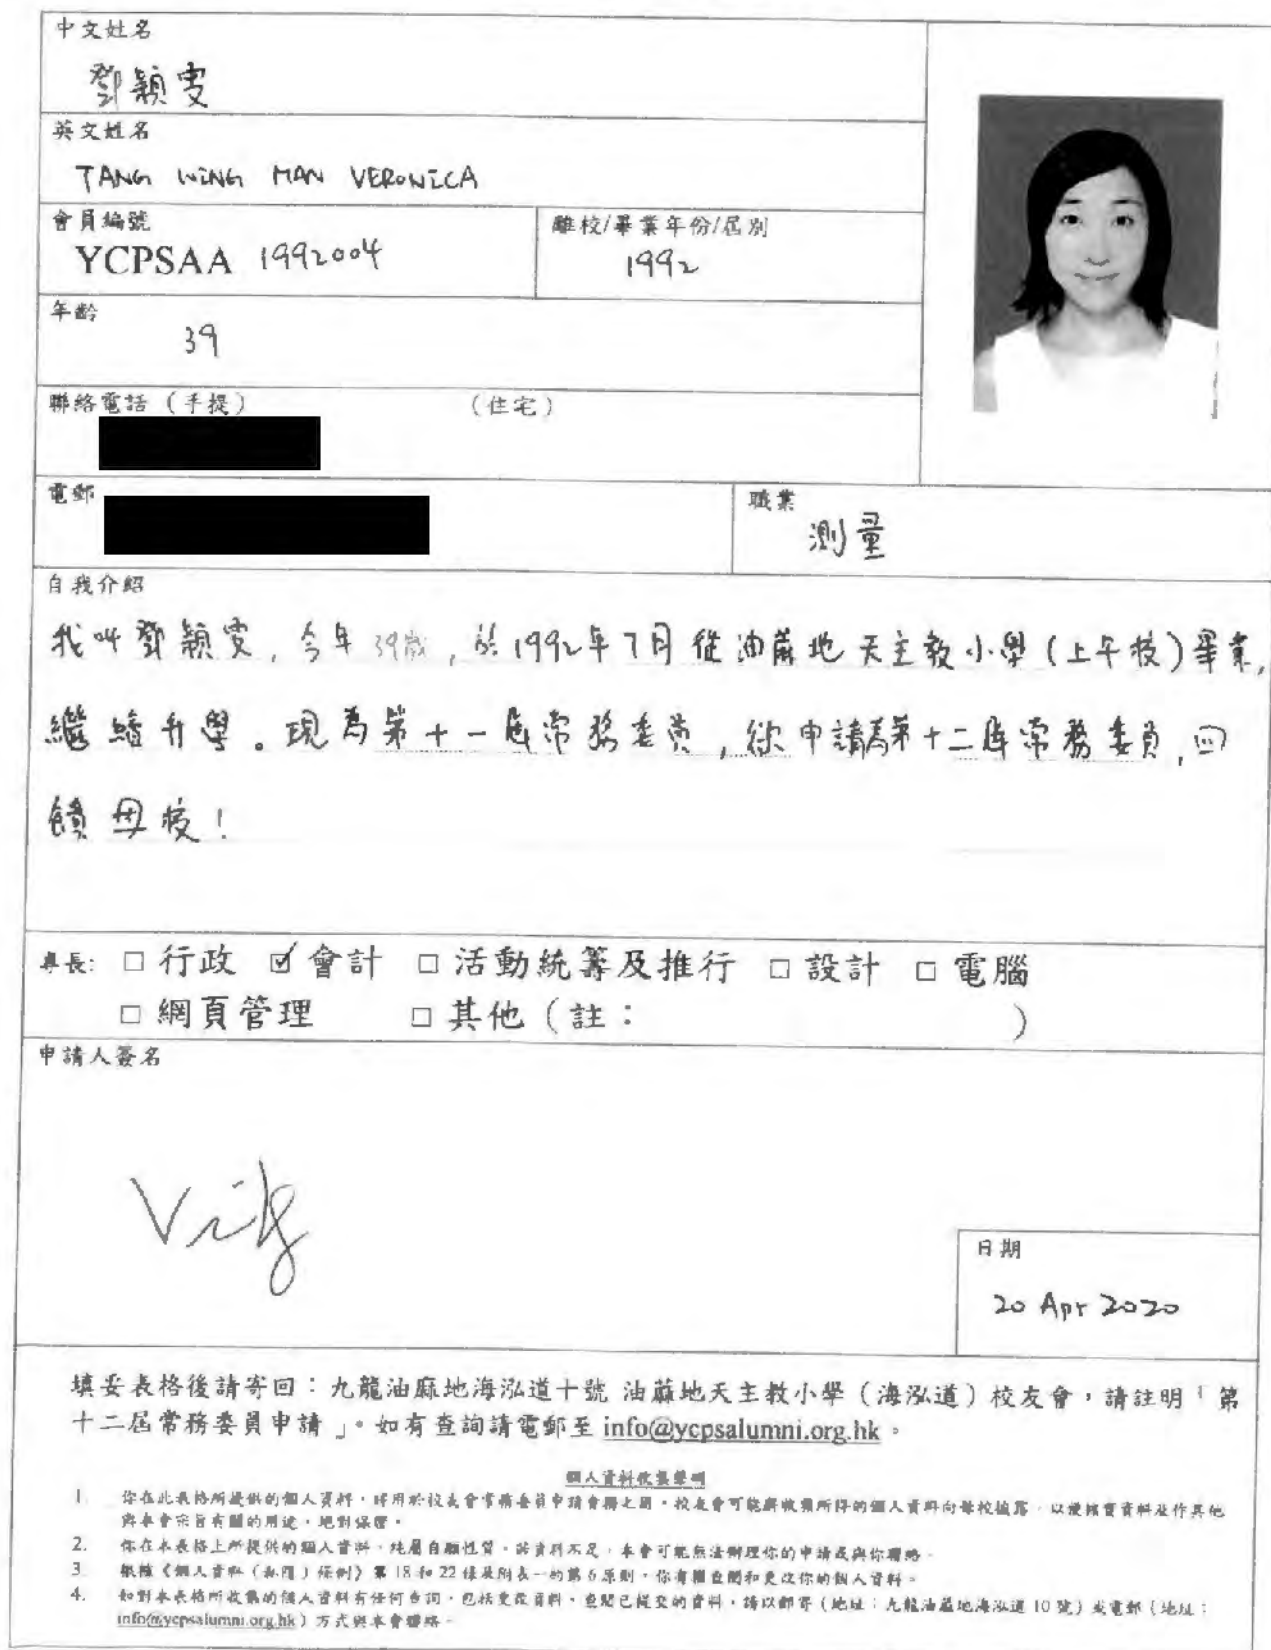 中文姓名
鄧穎雯
英文姓名
TANG WING MAN VERONICA
會員編號
YCPSAA 1992004
離校/畢業年份/屆別
1992
年齡
39
聯絡電話（手提） （住宅）
電郵
職業
測量
自我介紹
我叫鄧穎雯, 今年39歲, 於1992年7月從油蔴地天主教小學(上午校)畢業,
繼續升學。現為第十一屆常務委員, 欲申請為第十二屆常務委員, 回
饋母校!
專長: □ 行政 ☑ 會計 □ 活動統籌及推行 □ 設計 □ 電腦
□ 網頁管理 □ 其他（註： ）
申請人簽名
日期
20 Apr 2020
填妥表格後請寄回：九龍油麻地海泓道十號 油蔴地天主教小學（海泓道）校友會，請註明「第
十二屆常務委員申請」。如有查詢請電郵至 info@ycpsalumni.org.hk。
個人資料收集聲明
1. 你在此表格所提供的個人資料，將用於校友會常務委員申請會務之用。校友會可能將收集所得的個人資料向母校披露，以便核實資料及作其他
與本會宗旨有關的用途，絕對保密。
2. 你在本表格上所提供的個人資料，純屬自願性質。若資料不足，本會可能無法辦理你的申請或與你聯絡。
3. 根據《個人資料（私隱）條例》第 18 和 22 條及附表一的第 6 原則，你有權查閱和更改你的個人資料。
4. 如對本表格所收集的個人資料有任何查詢，包括更改資料，查閱已提交的資料，請以郵寄（地址：九龍油蔴地海泓道 10 號）或電郵（地址：
info@ycpsalumni.org.hk）方式與本會聯絡。